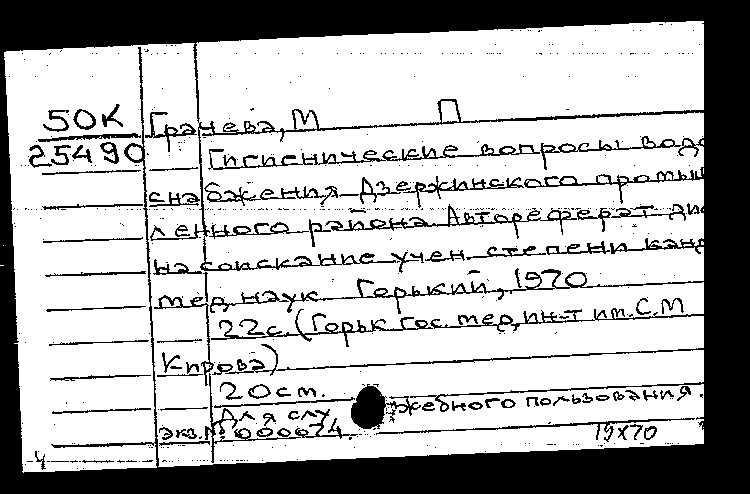 50К Грачева, М П
25490 Гигиенические вопросы водо
снабжения Дзержинского промыш
ленного района Автореферат дис
на соискание учен. степени канд
мед наук. Горький, 1970.
22с. (Горьк Гос. мед, ин-т им. С.М
Кирова)
20 см.
Для слу жебного пользования.
экз. № 000074.
19X70
4